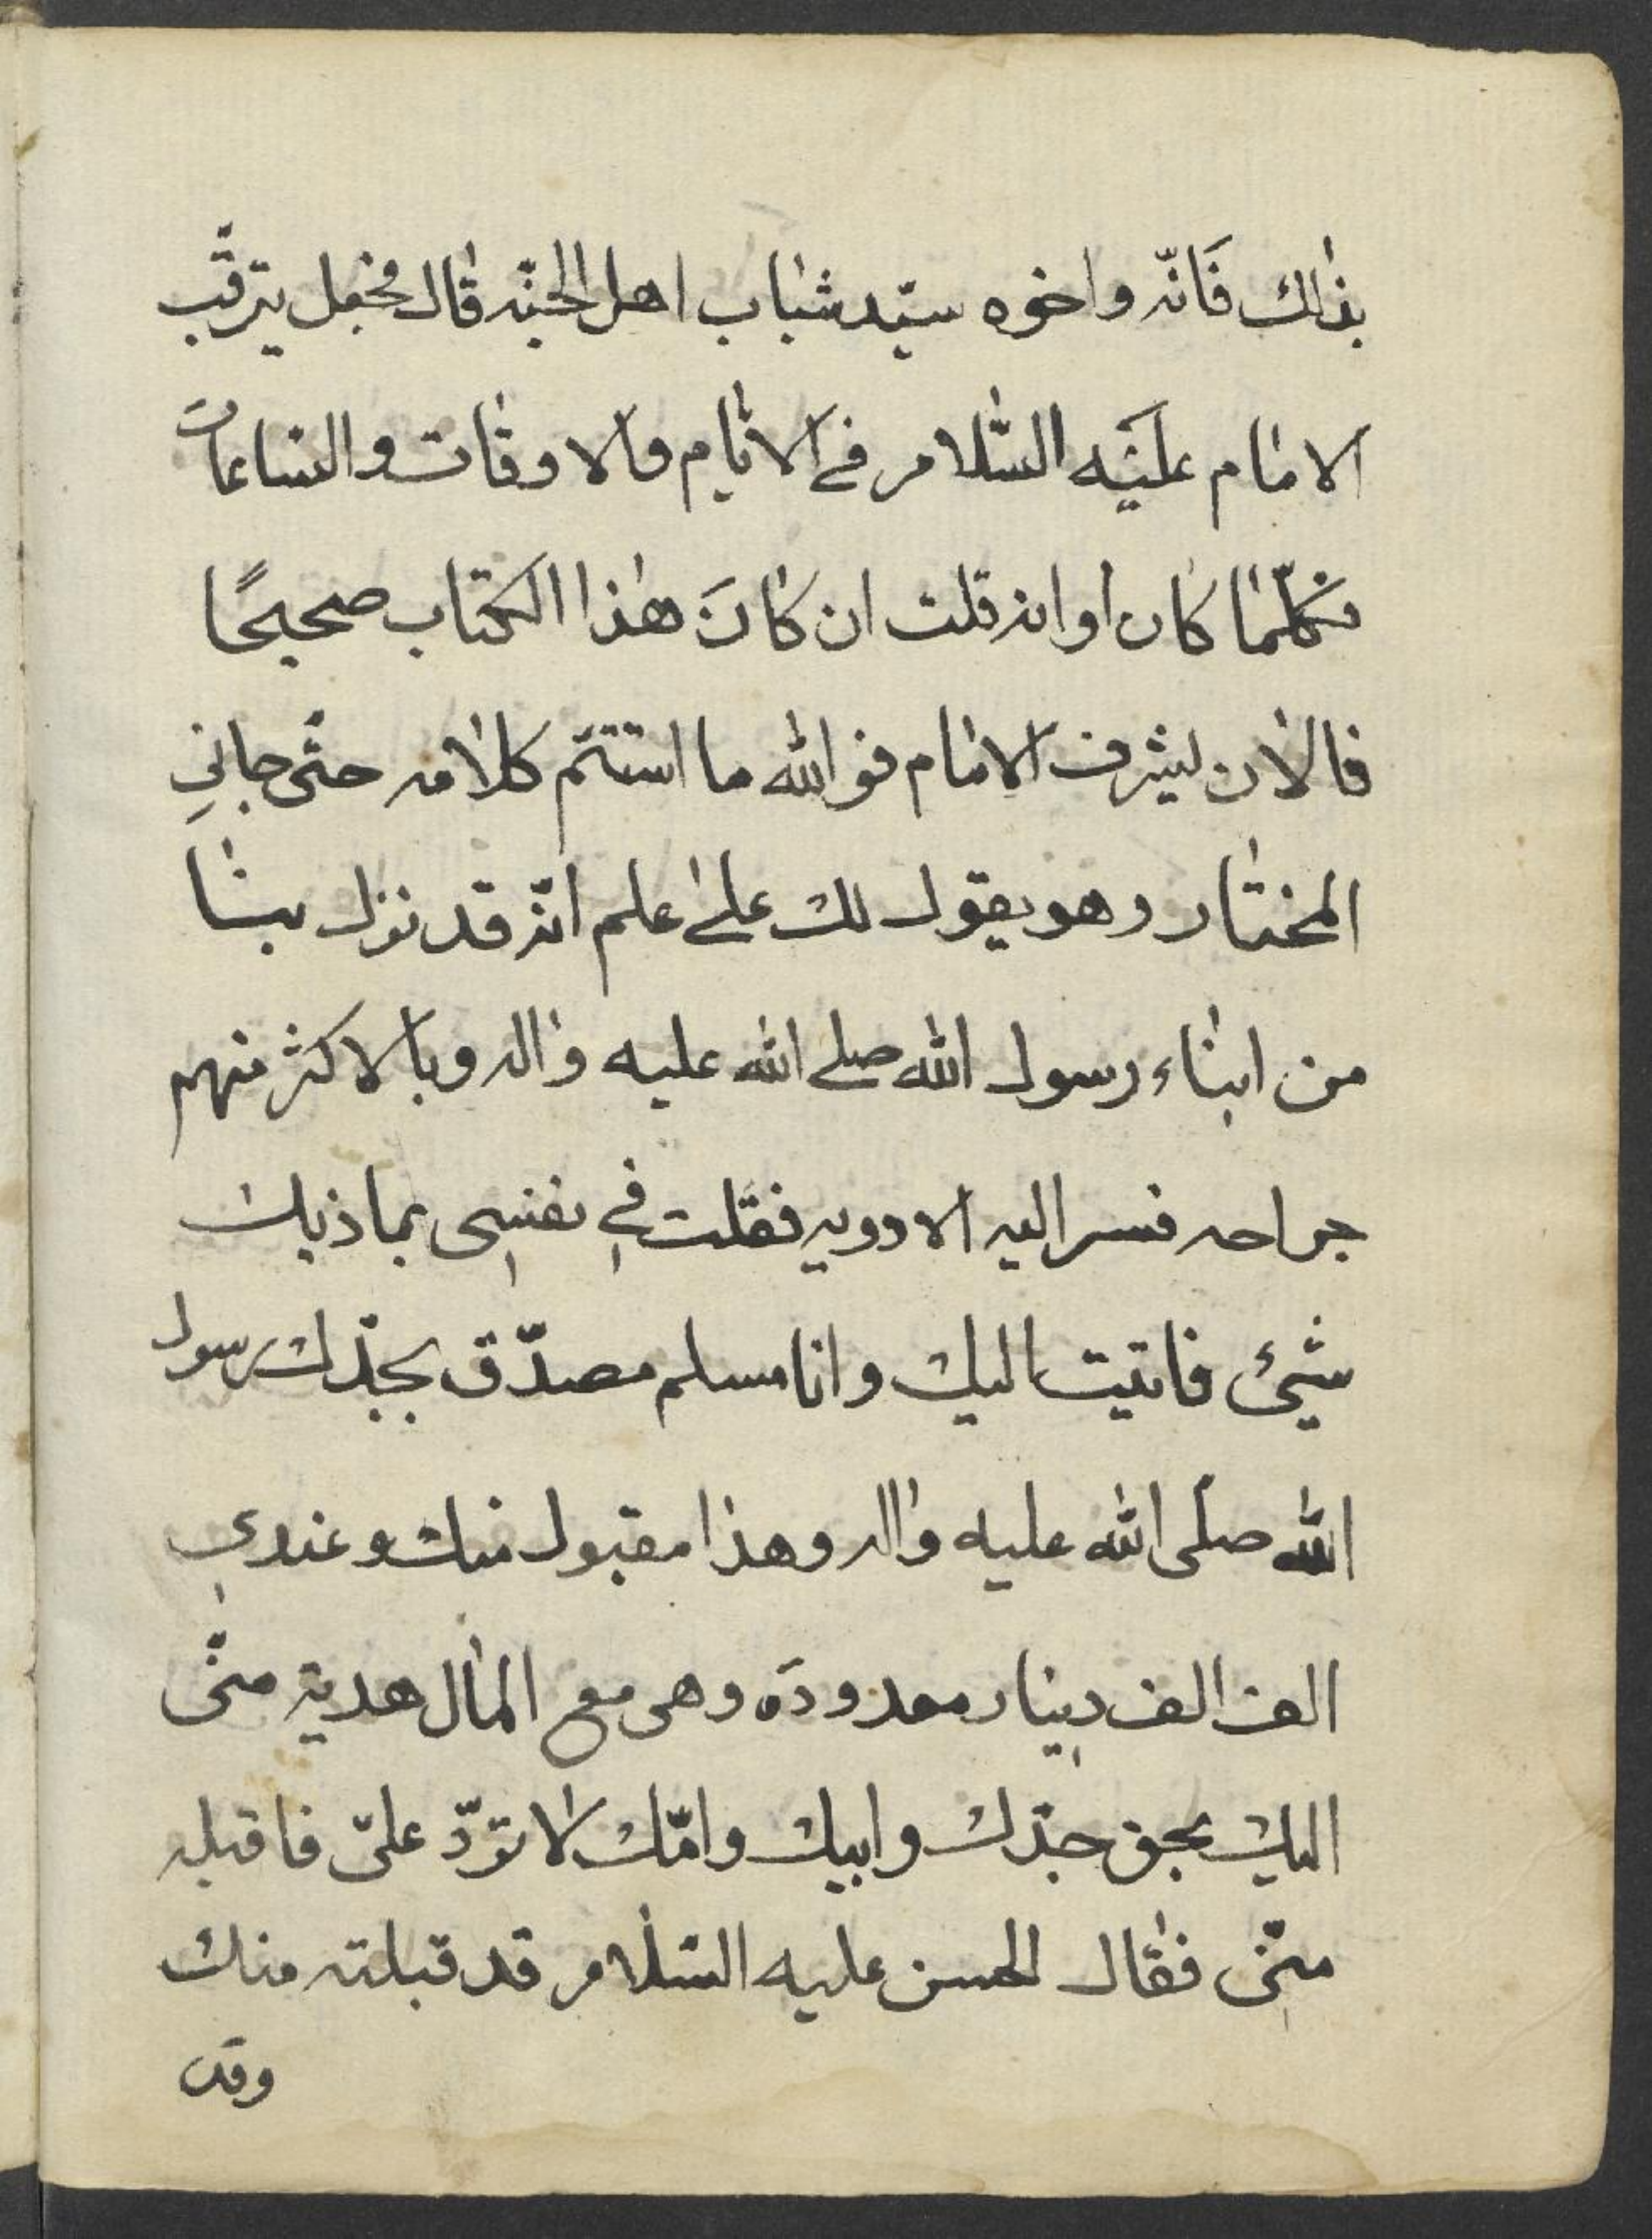 بذالك فَانّه واخوه سيّد شباب اهل الجنّه قال فجعل يترقّب
الامام عليَه السّلام في الايّام والاوقات والساعات
فكلّما كان اوانه قلت ان كانَ هذا الكتاب صحيحًا
فالان ليشرف الامام فوالله ما استتمّ كلامه حتّى جاني
المختار وهو يقول لك على علم انّه قد نزل بنا
من ابناء رسول الله صلى الله عليه واله وبالاكثر منهم
جراحه فسر اليه الادويه فقلت في نفسى بما ذلك
شيئ فاتيت اليك وانا مسلم مصدّق بجدّك رسول
الله صلّى الله عليه واله وهذا مقبول منك وعندي
الف الف دينار معدودة وهى مع المال هدية منّى
اليك بحق جدّك وابيك وامّك لا تردّ علىّ فاقبله
منّى فقال الحسن عليه السّلام قد قبلته منك
وقد